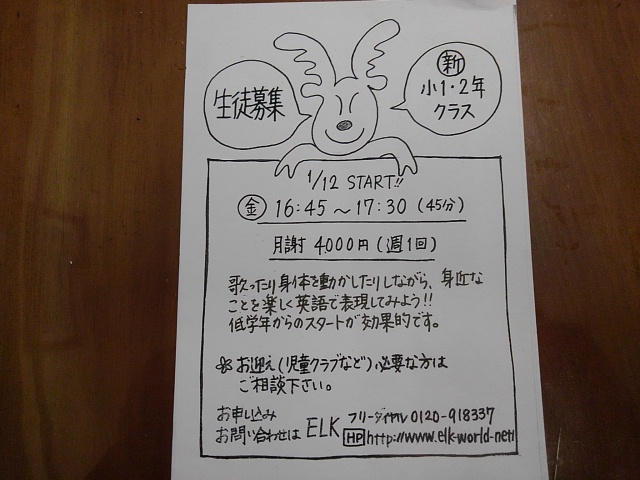 生徒募集
新
小1・2年
クラス
1/12 START!!
金 16:45～17:30 (45分)
月謝 4000円 (週1回)
歌ったり身体を動かしたりしながら、身近な
ことを楽しく英語で表現してみよう!!
低学年からのスタートが効果的です。
お迎え(児童クラブなど)必要な方は
ご相談下さい。
お申し込み
お問い合わせは ELK フリーダイヤル 0120-918337
HP http://www.elk-world-net/